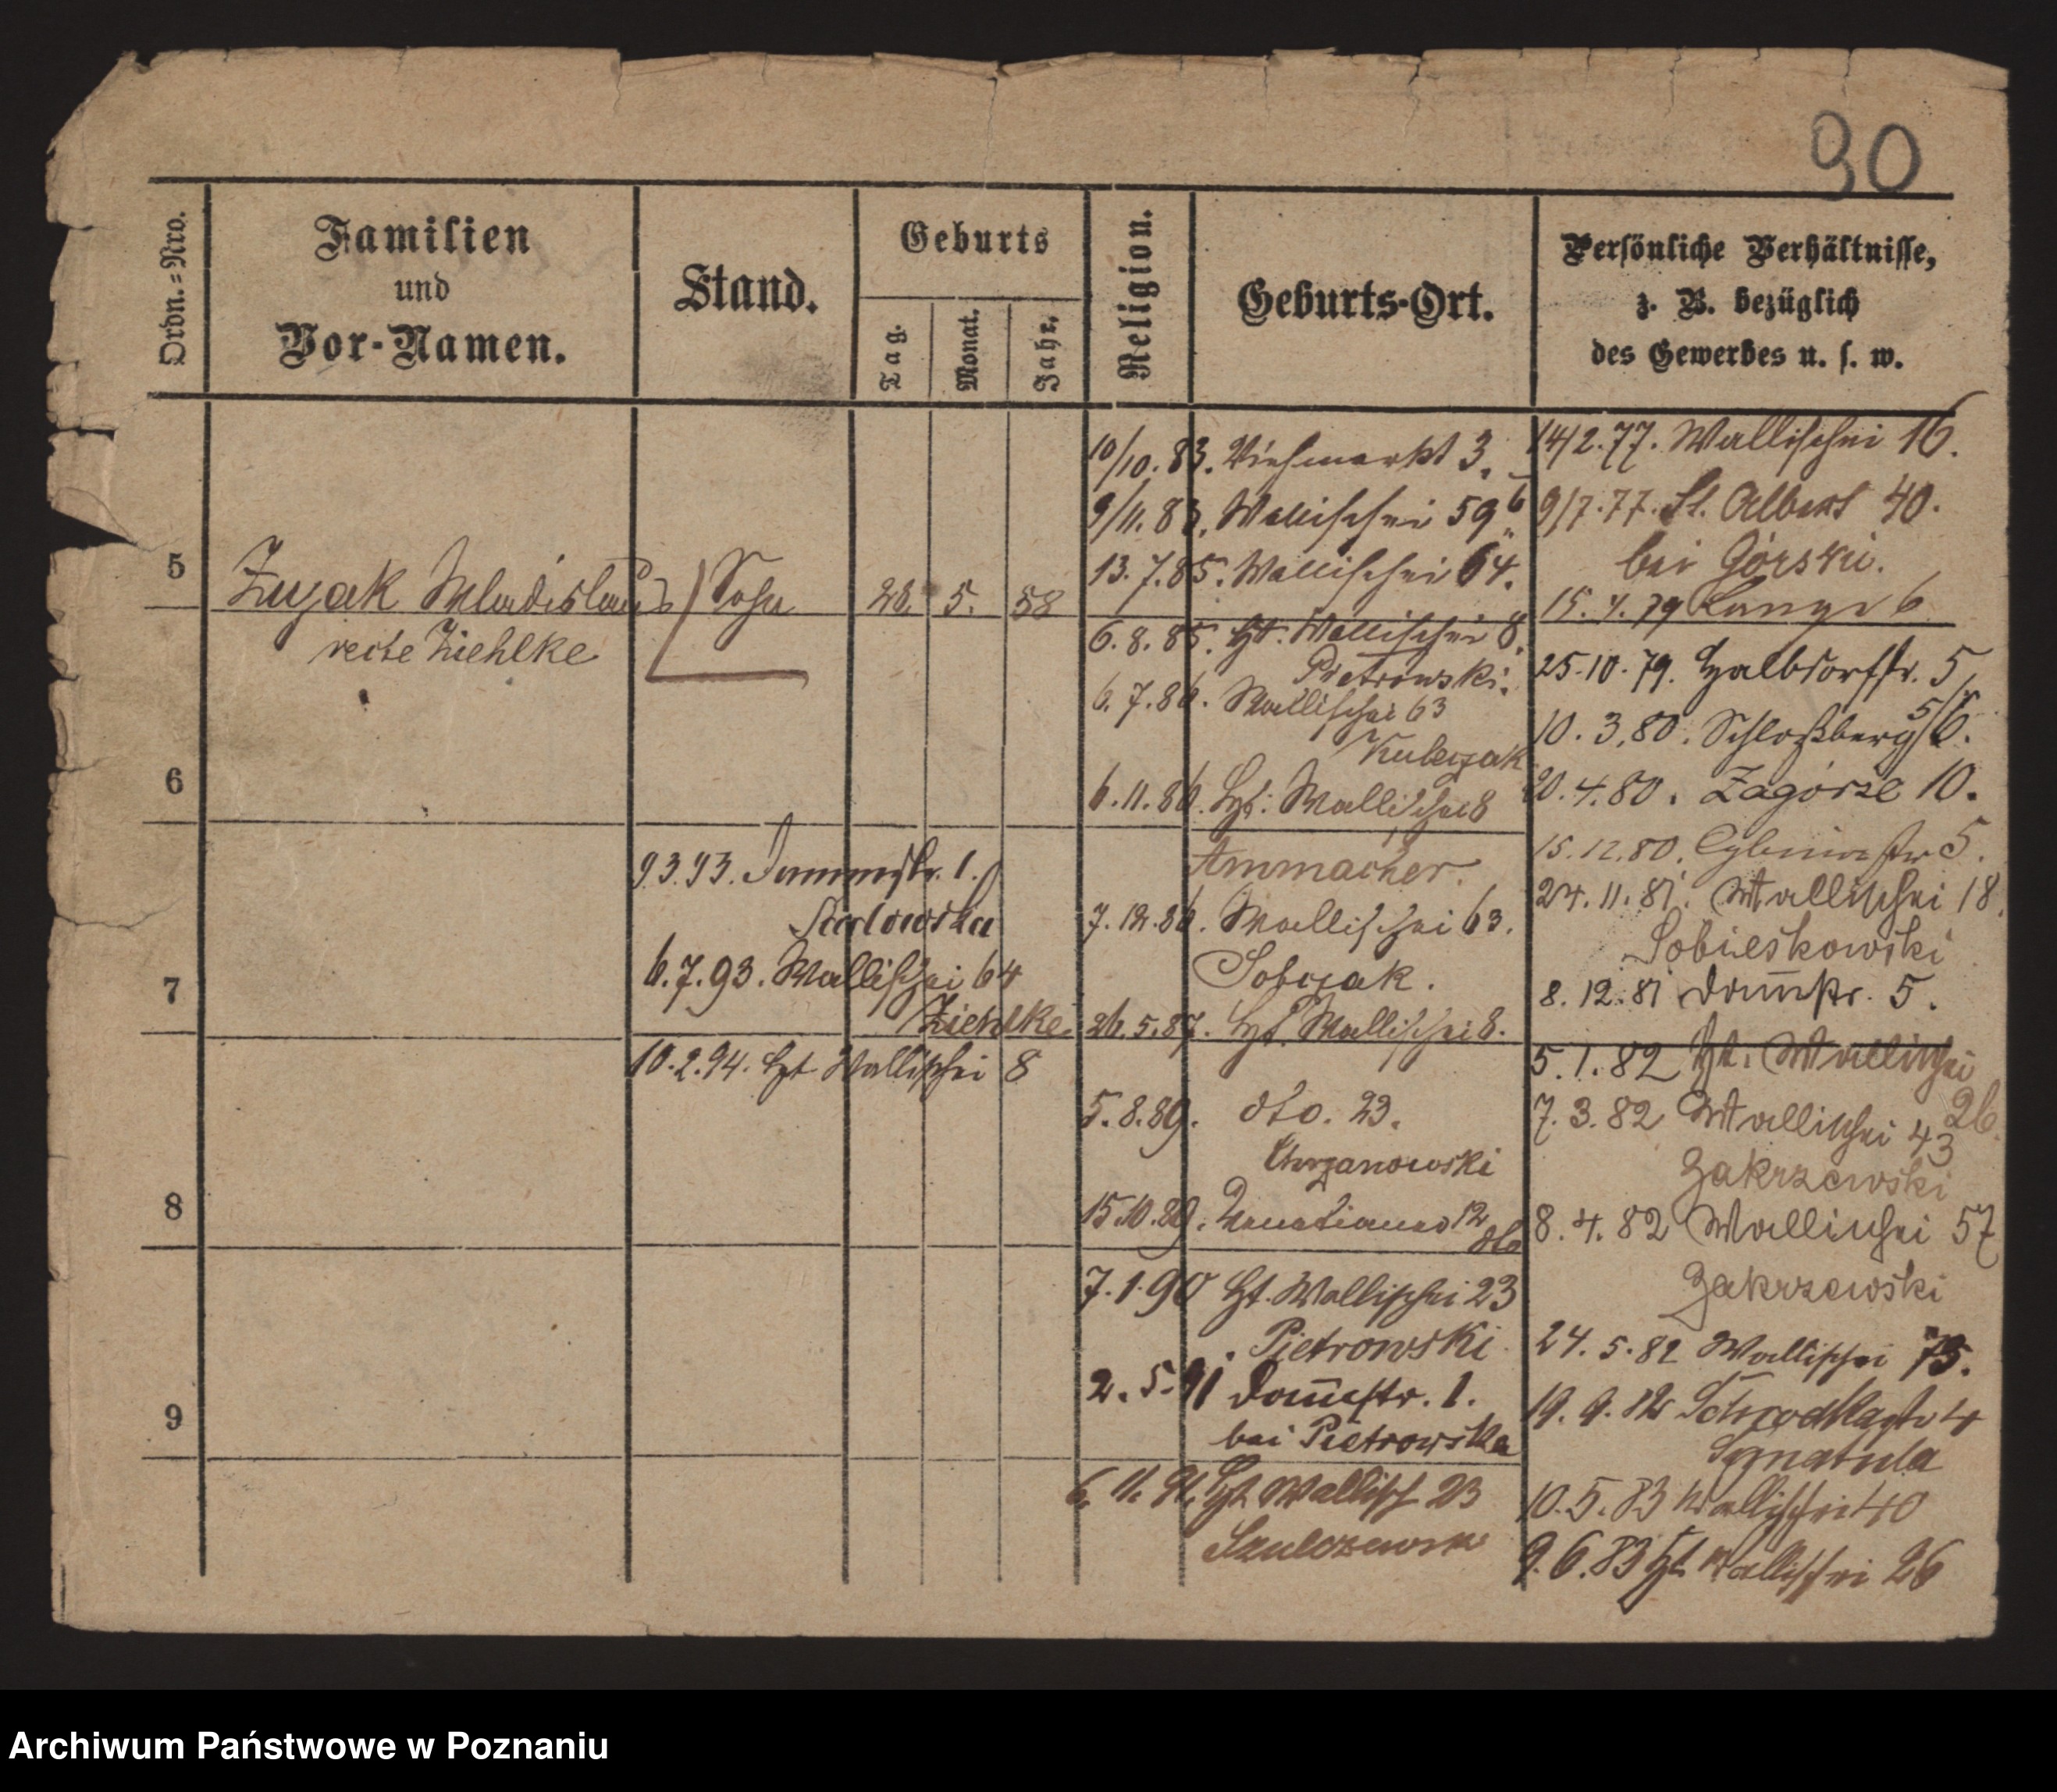 90
Ordn.=Nro.
Familien
und
Vor-Namen.
Stand.
Geburts
Tag.
Monat.
Jahr.
Religion.
Geburts-Ort.
Persönliche Verhältnisse,
z. B. bezüglich
des Gewerbes u. s. w.
5
Zuyak Wladislaus
recte Ziehlke
Sohn
28. 5. 58
6
7
8
9
9.3.93. Dommstr. 1.
6.7.93. Wallischei 64
Ziehlke
10.2.94. Hpt Wallischei 8
10/10.83. Viehmarkt 3.
9/11.83. Wallischei 59
13.7.85. Wallischei 64.
6.8.85. Hpt. Wallischei 8.
Pietrowski.
6.7.86. Wallischei 63
Kulczak
6.11.86. Hpt. Wallischei 8
Ammacher.
7.12.86. Wallischei 63.
Sobczak.
26.5.87. Hpt. Wallischei 8.
5.8.89. dto. 23.
Chrzanowski
15.10.89. Venetianer 12
dto
7.1.90 Hpt. Wallischei 23
Pietrowski
2.5.91 Domstr. 1.
bei Pietrowska
6.11.91. Hpt Wallisch 23
14/2.77. Wallischei 16.
9/7.77. St. Albert 40.
bei Górski.
15.4.79 Lange 6
25.10.79. Halbdorfstr. 5
10.3.80. Schloßberg 5/6.
20.4.80. Zagórze 10.
15.12.80. Cybinastr 5.
24.11.81. Wallischei 18.
Sobieskowski
8.12.81 Domstr. 5.
5.1.82 Hpt. Wallischei
26.
7.3.82 Wallischei 43
Zakrzewski
8.4.82 Wallischei 57
Zakrzewski
24.5.82 Wallischei 75.
19.9.82 Schrodkastr 4
Ignatula
10.5.83 Wallischei 40
9.6.83 Hpt Wallischei 26
Archiwum Państwowe w Poznaniu